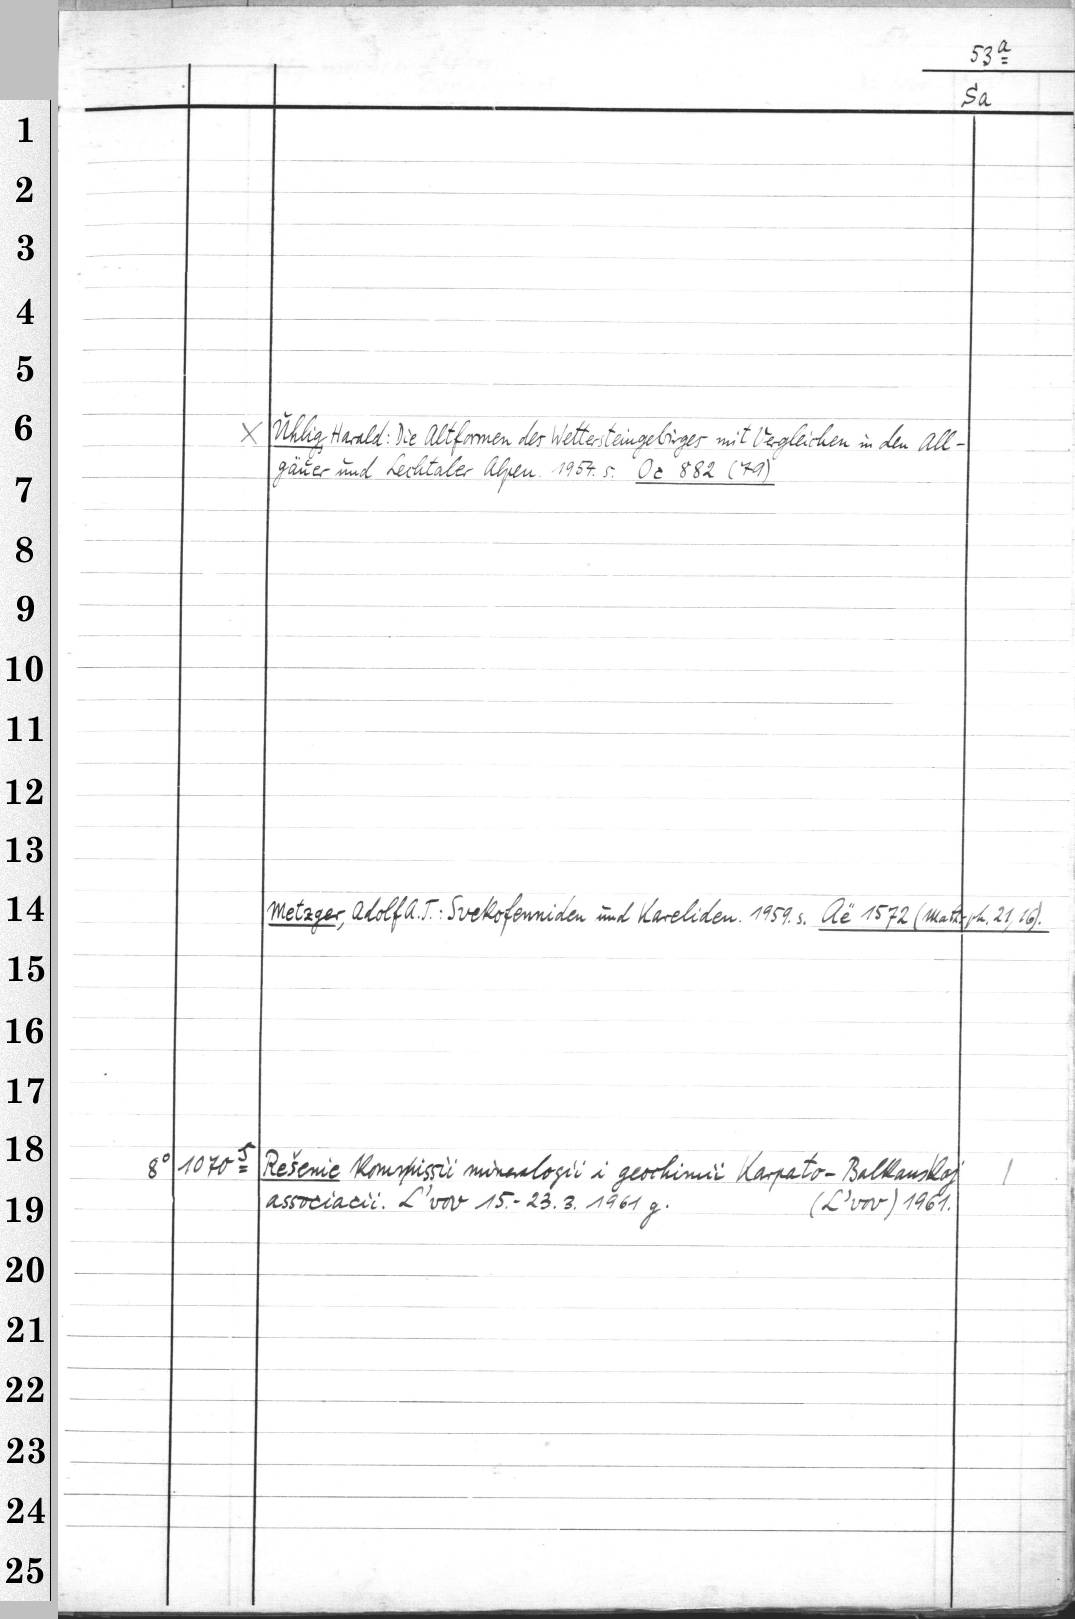 53a
Sa
1
2
3
4
5
6
× Uhlig, Harald: Die Altformen des Wettersteingebirges mit Vergleichen in den All-
gäuer und Lechtaler Alpen. 1954. s. Oc 882 (79)
7
8
9
10
11
12
13
14
Metzger, Adolf A. T.: Svekofenniden und Kareliden. 1959. s. Aë 1572 (Math.-ph. 21, 16).
15
16
17
18
8° 1070 5 Rešenie Kommissii mineralogii i geochimii Karpato-Balkanskoj 1
associacii. L'vov 15.-23.3.1961 g. (L'vov) 1961.
19
20
21
22
23
24
25